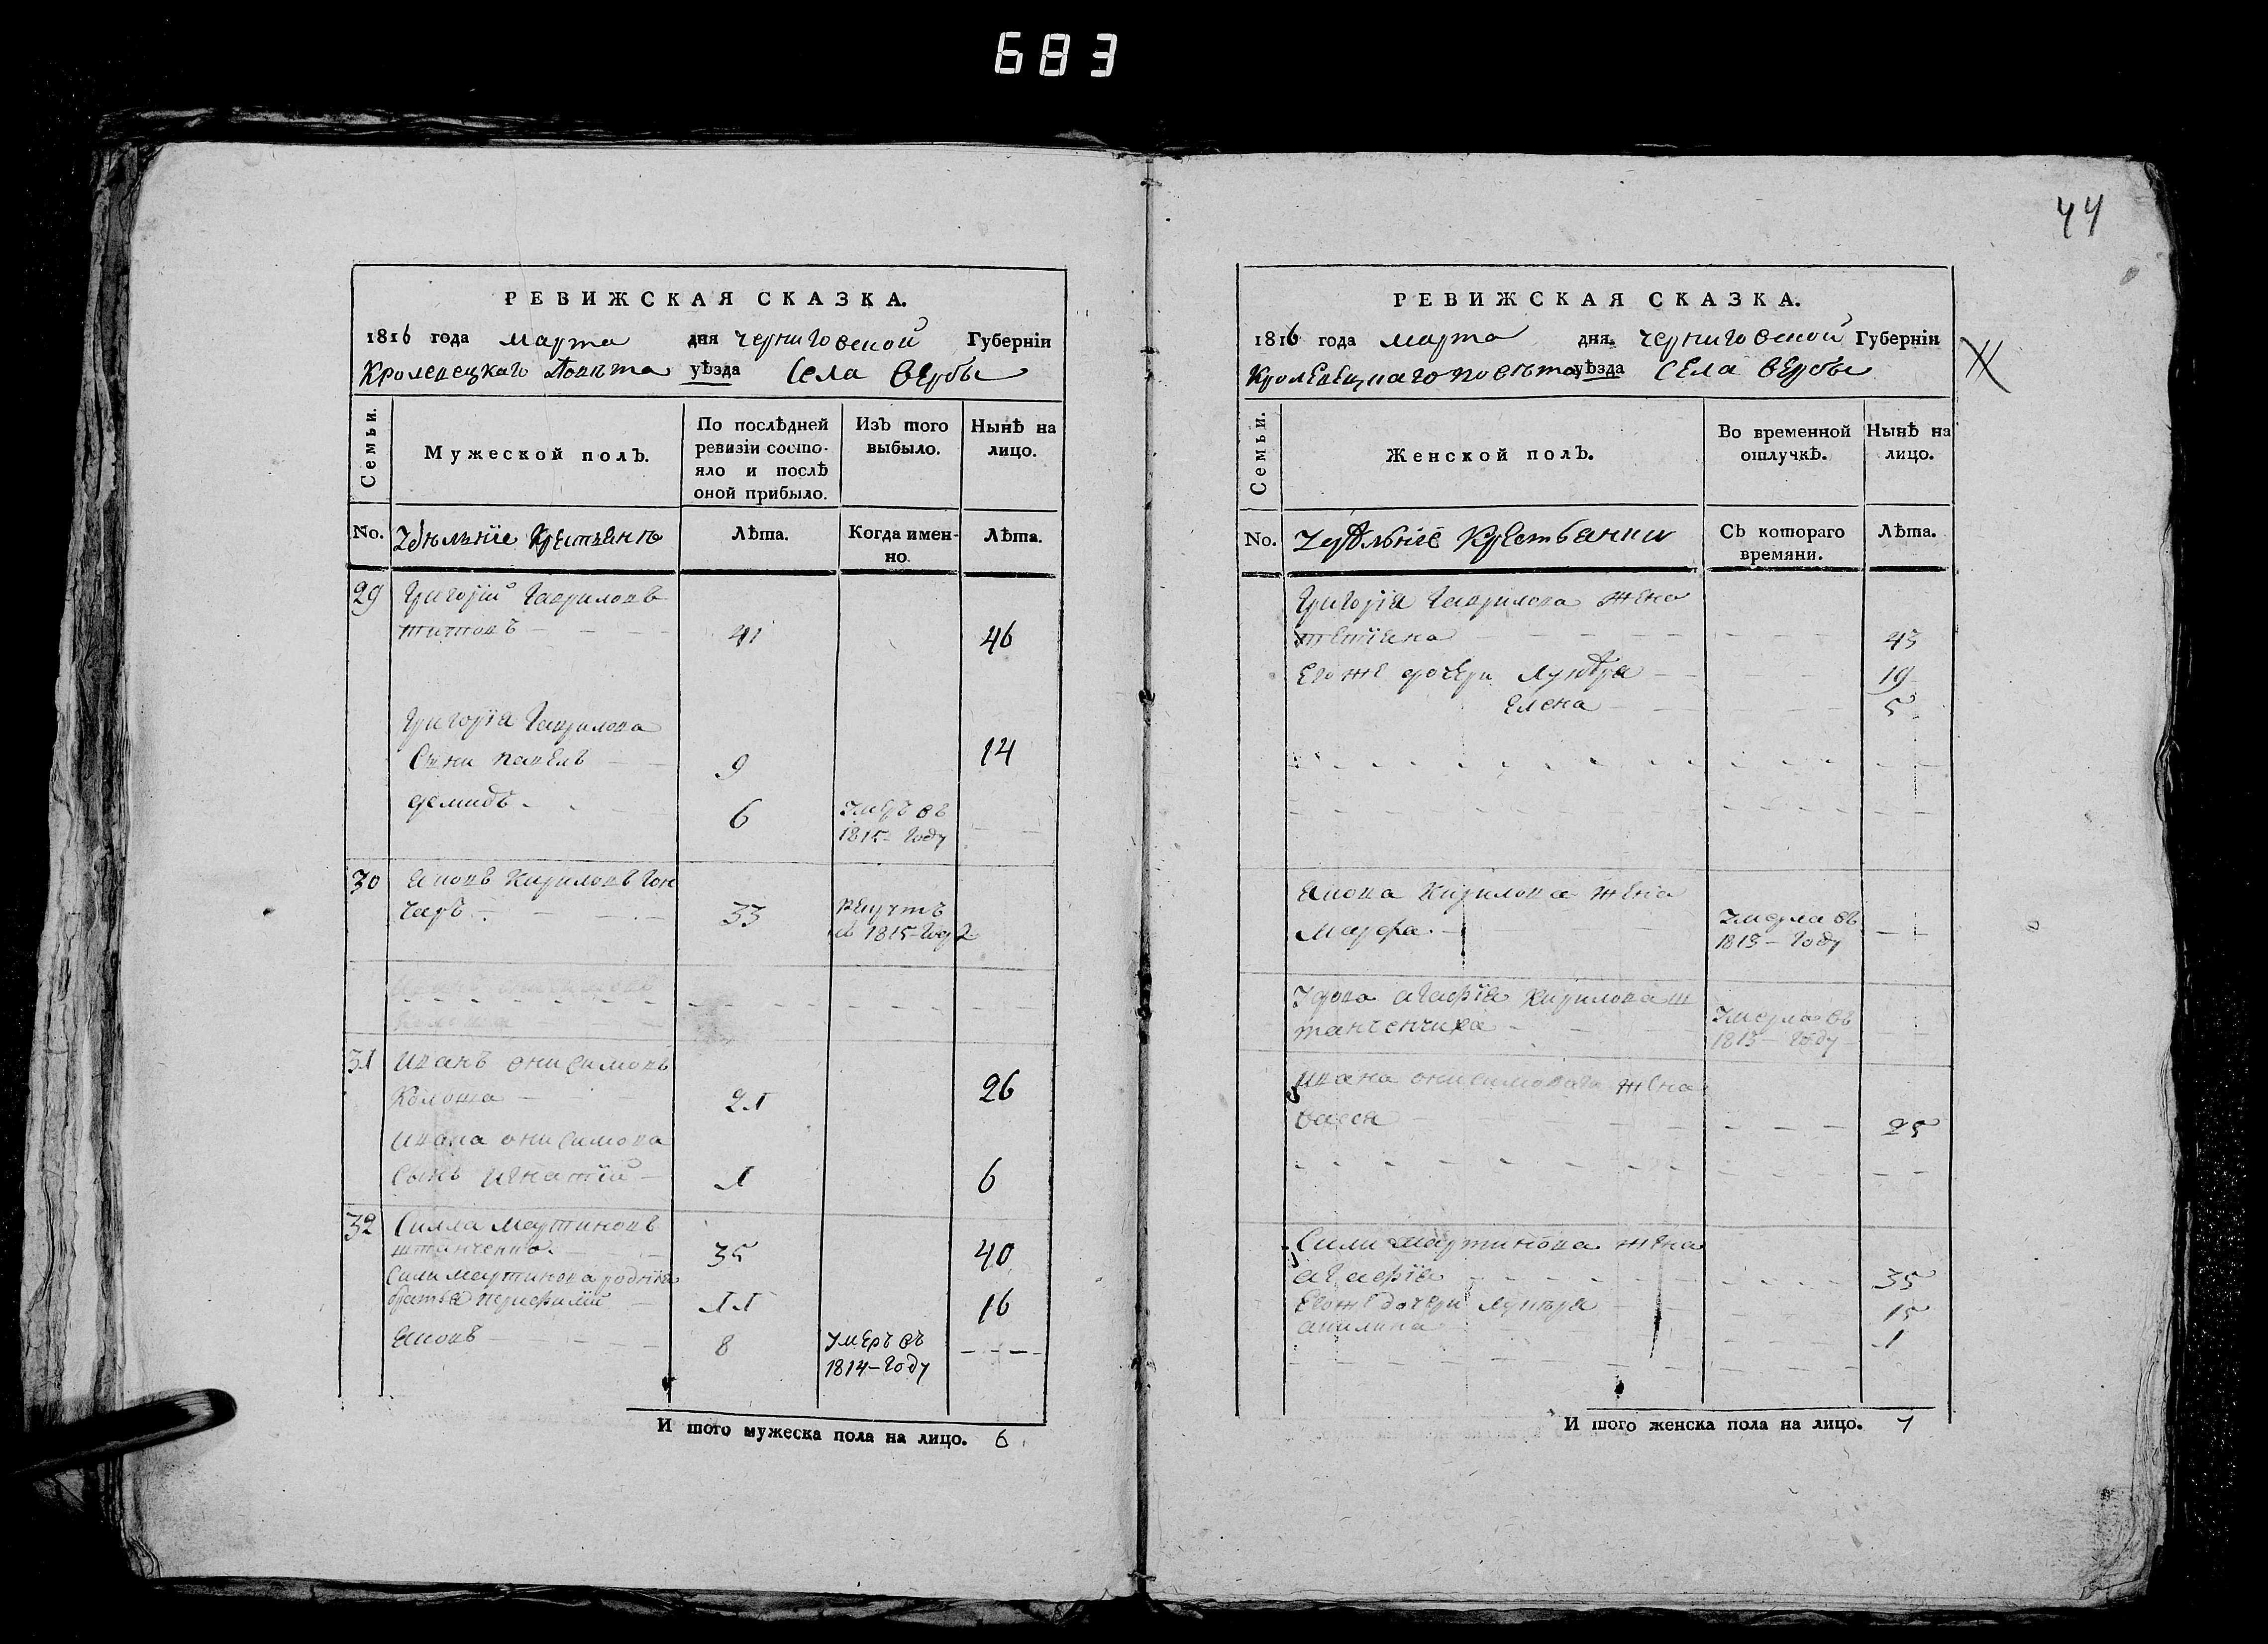 683
44
РЕВИЖСКАЯ СКАЗКА.
1816 года марта дня черниговской Губерніи
Кролевецкаго повѣта уѣзда Села вербы
Семьи.
Мужеской полъ.
По послѣдней ревизіи состояло и послѣ оной прибыло.
Изъ того выбыло.
Нынѣ на лицо.
No.
Лѣта.
Когда именно.
Лѣта.
29 Григорій Гавриловъ
титовъ 41 46
Григорія Гаврилова
Сыни павелъ 9 14
демидъ 6 умеръ въ
1815 году
30 Яковъ Кириловъ Гон
чаръ 33 рекрутъ
въ 1815 году
31 Иванъ онисимовъ
21 26
Ивана онисимова
Сынъ игнатій 1 6
32 Силла мартиновъ
штанченко 35 40
Сили мартинова родніе
братья 11 16
Яковъ 8 умеръ въ
1814 году
И того мужеска пола на лицо. 6
РЕВИЖСКАЯ СКАЗКА.
1816 года марта дня черниговской Губерніи
Кролевецкаго повѣта уѣзда Села вербы
Семьи.
Женской полъ.
Во временной отлучкѣ.
Нынѣ на лицо.
No.
Съ котораго времяни.
Лѣта.
Григорія Гаврилова жена
43
Его же дочери 19
Елена 5
Якова Кирилова жена
Марфа умерла въ
1813 году
Удова агафія Кирилова ш
танченчиха умерла въ
1813 году
Ивана онисимоваго жена
васса 25
Сили мартинова жена
агафія 35
Его же дочери 15
акилина 1
И того женска пола на лицо. 7